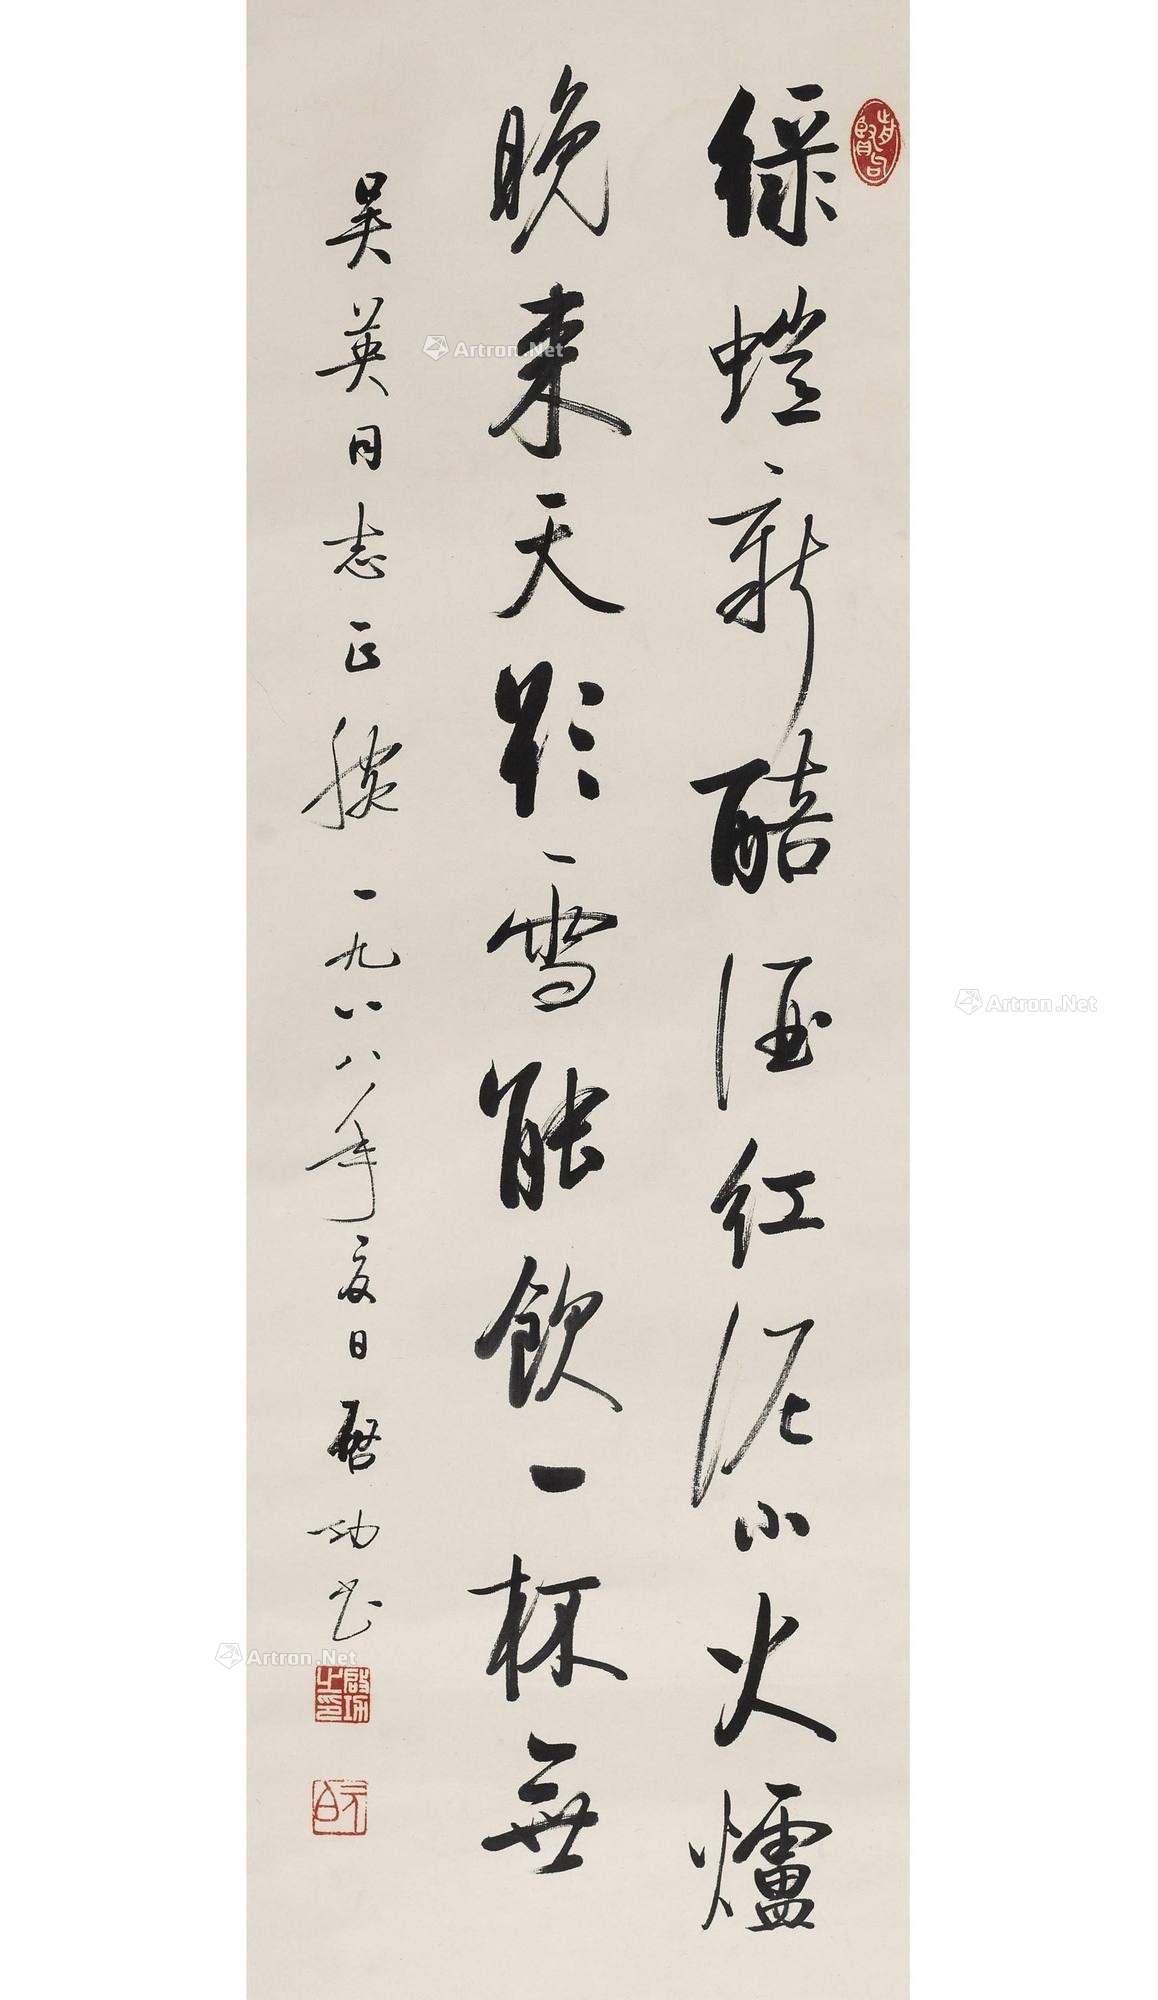 綠螘新醅酒紅泥小火爐
晚來天欲雪能飲一杯無
吴英同志正腕 一九八八年夏日 啓功书
啟功之印
元白
Artron.Net
Artron.Net
Artron.Net